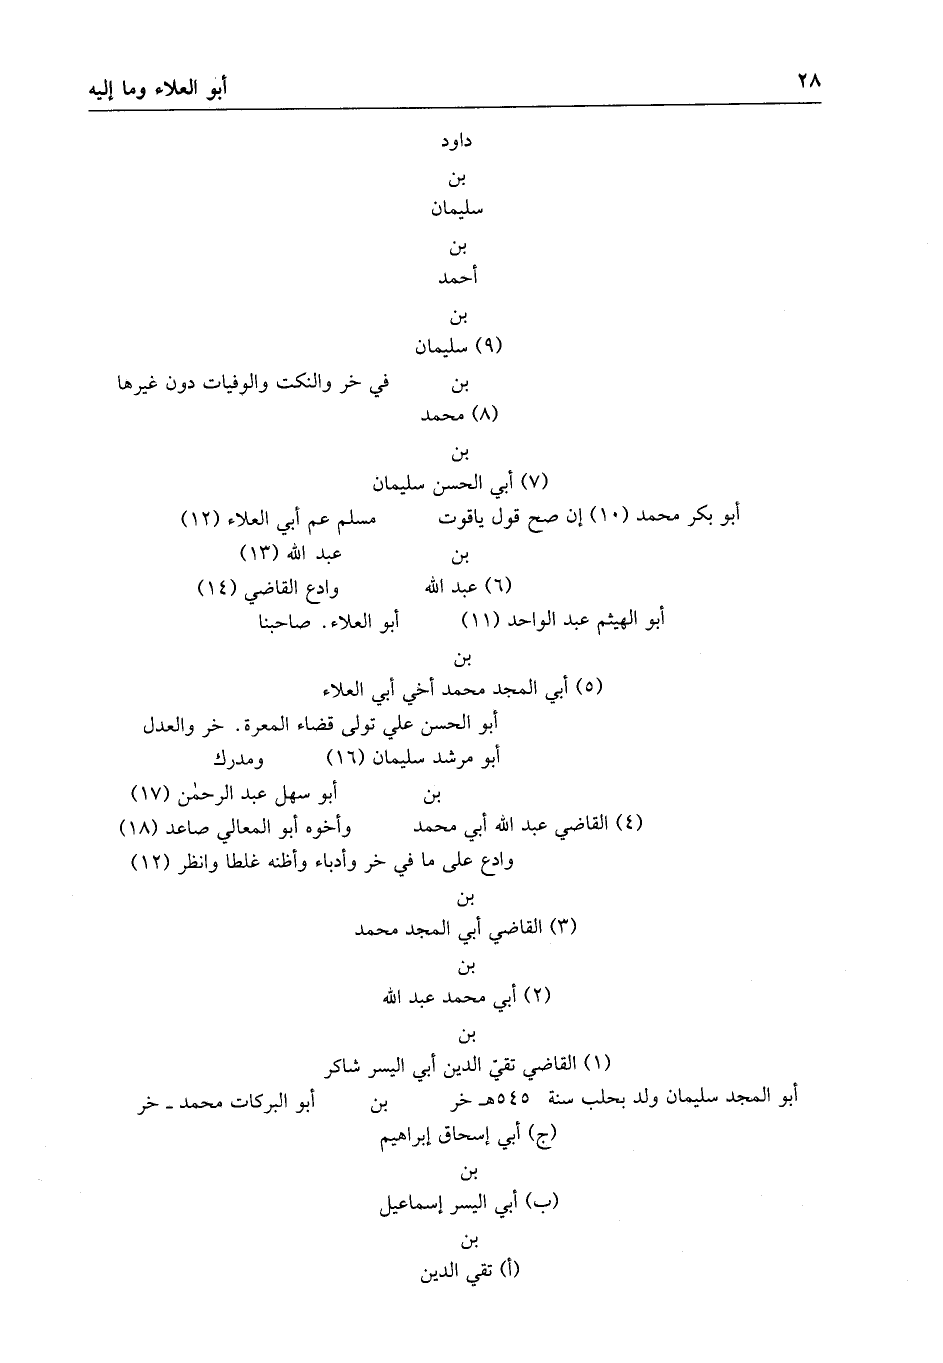 ٢٨ أبو العلاء وما إليه
داود
بن
سليمان
بن
أحمد
بن
(٩) سليمان
بن في خر والنكت والوفيات دون غيرها
(٨) محمد
بن
(٧) أبي الحسن سليمان
أبو بكر محمد (١٠) إن صح قول ياقوت مسلم عم أبي العلاء (١٢)
بن عبد الله (١٣)
(٦) عبد الله وادع القاضي (١٤)
أبو الهيثم عبد الواحد (١١) أبو العلاء. صاحبنا
بن
(٥) أبي المجد محمد أخي أبي العلاء
أبو الحسن علي تولى قضاء المعرة. خر والعدل
أبو مرشد سليمان (١٦) ومدرك
بن أبو سهل عبد الرحمٰن (١٧)
(٤) القاضي عبد الله أبي محمد وأخوه أبو المعالي صاعد (١٨)
وادع على ما في خر وأدباء وأظنه غلطا وانظر (١٢)
بن
(٣) القاضي أبي المجد محمد
بن
(٢) أبي محمد عبد الله
بن
(١) القاضي تقيّ الدين أبي اليسر شاكر
أبو المجد سليمان ولد بحلب سنة ٥٤٥هـ خر بن أبو البركات محمد ـ خر
(ج) أبي إسحاق إبراهيم
بن
(ب) أبي اليسر إسماعيل
بن
(أ) تقي الدين